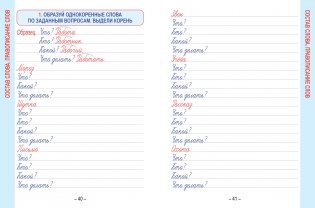 СОСТАВ СЛОВА. ПРАВОПИСАНИЕ СЛОВ
1. ОБРАЗУЙ ОДНОКОРЕННЫЕ СЛОВА
ПО ЗАДАННЫМ ВОПРОСАМ. ВЫДЕЛИ КОРЕНЬ
Образец. Что? Работа
Кто? Работник
Какой? Рабочий
Что делать? Работать
Мороз
Что?
Кто?
Какой?
Что делать?
Шутка
Что?
Кто?
Какой?
Что делать?
Письмо
Что?
Кто?
Какой?
Что делать?
– 40 –
Что?
Кто?
Какой?
Что делать?
Что?
Кто?
Какой?
Что делать?
Рассказ
Что?
Кто?
Какой?
Что делать?
Охота
Что?
Кто?
Какой?
Что делать?
– 41 –
СОСТАВ СЛОВА. ПРАВОПИСАНИЕ СЛОВ